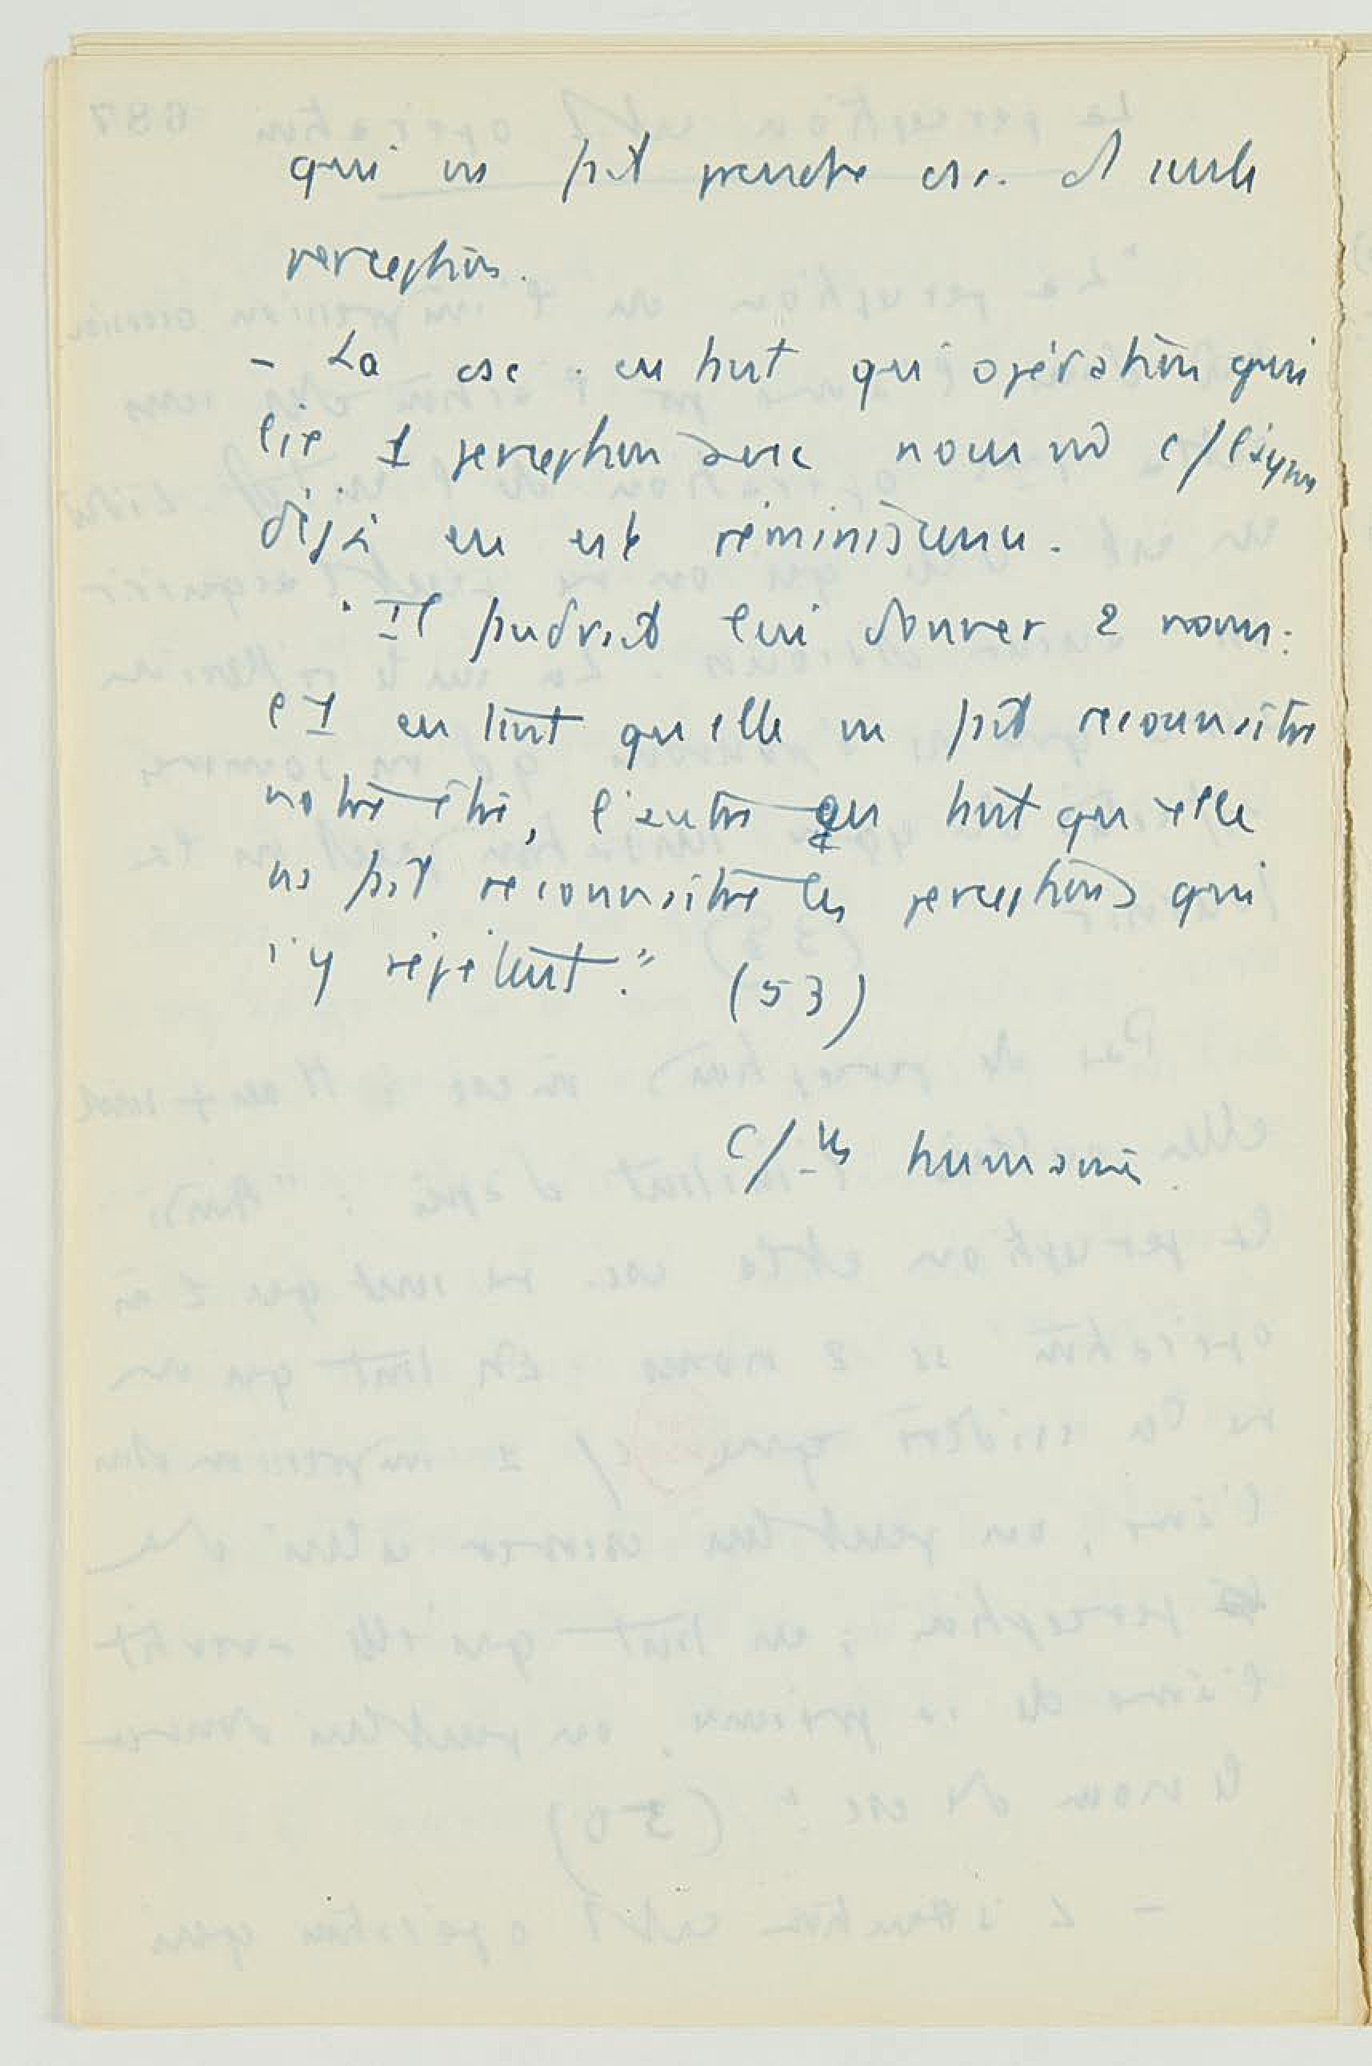 qui ns fait prendre csc. d'1 seule
perception.
- La csc. en tant qu'opération qui
lie 1 perception avec nous nd c/ l'ayant
déjà eu est réminiscence.
"Il faudrait lui donner 2 noms :
l'1 en tant qu'elle ns fait reconnaître
notre être, l'autre en tant qu'elle
ns fait reconnaître les perceptions qui
s'y répètent." (53)
C/. humaines